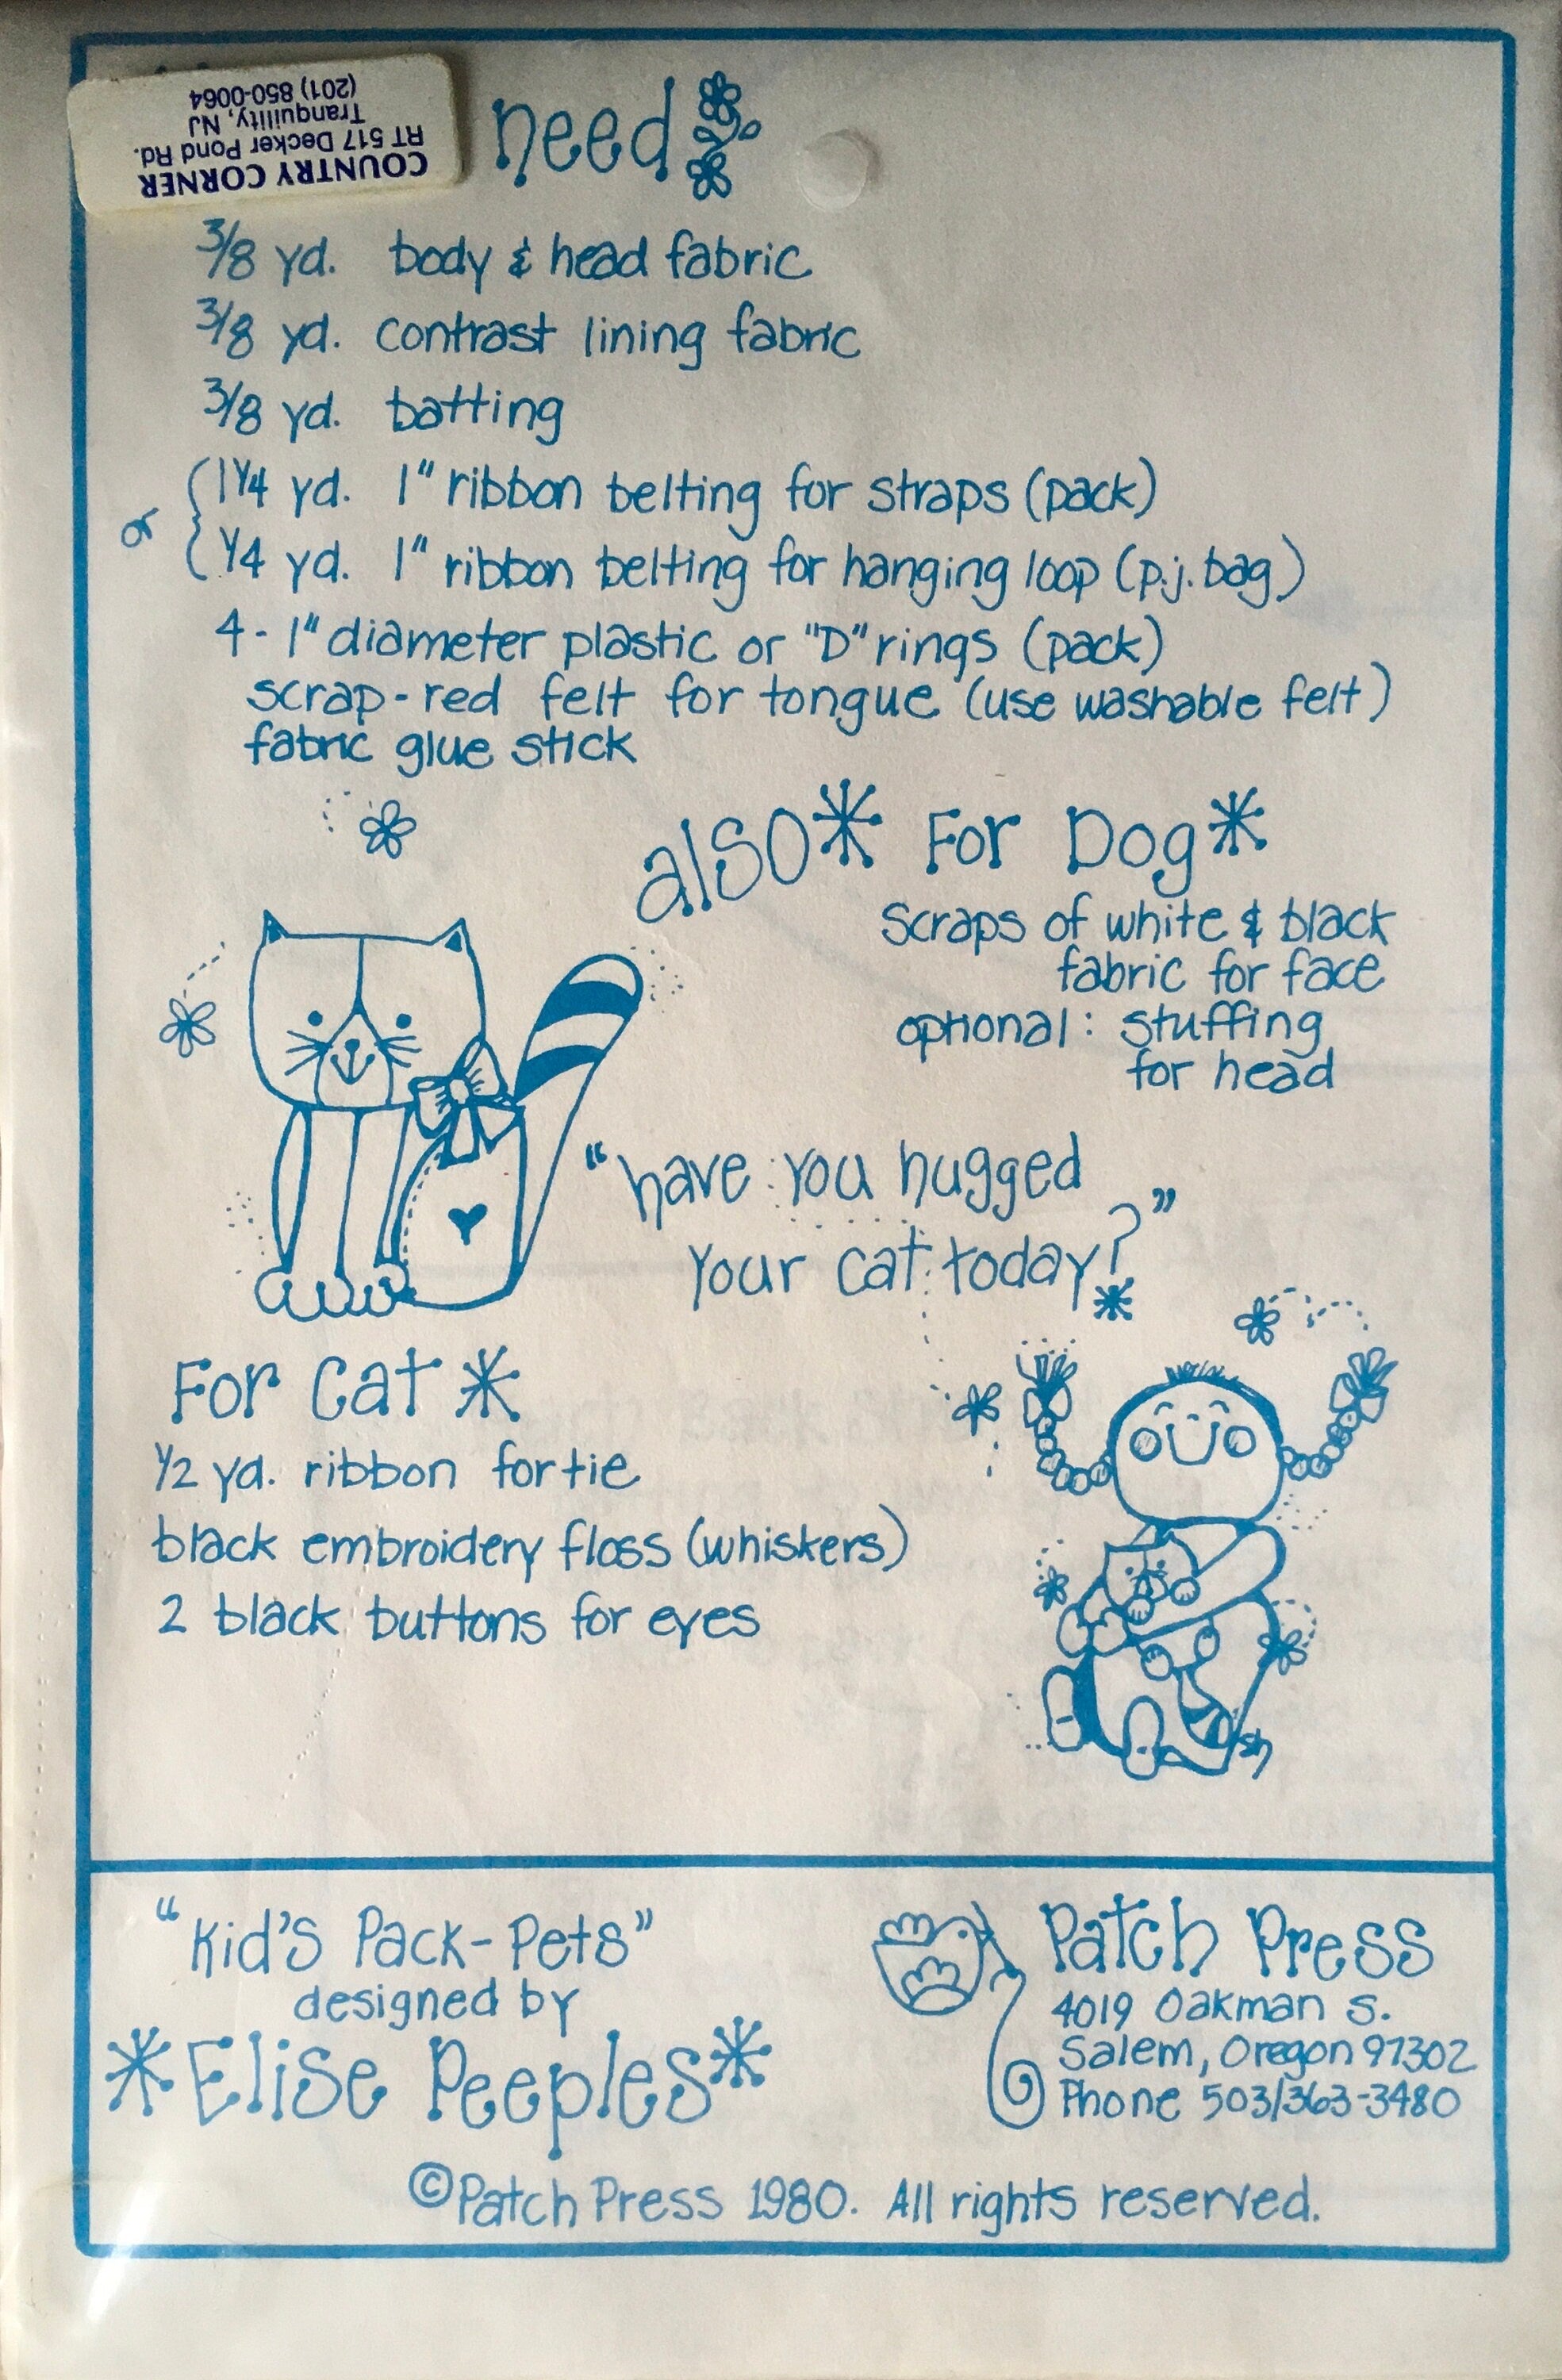 COUNTRY CORNER
RT 517 Decker Pond Rd.
Tranquility, NJ
(201) 850-0064
need
3/8 yd. body & head fabric
3/8 yd. contrast lining fabric
3/8 yd. batting
or
1 1/4 yd. 1" ribbon belting for straps (pack)
1/4 yd. 1" ribbon belting for hanging loop (p.j. bag)
4 - 1" diameter plastic or "D" rings (pack)
scrap - red felt for tongue (use washable felt)
fabric glue stick
also* For Dog*
Scraps of white & black
fabric for face
optional: stuffing
for head
"have you hugged
your cat today?"
For Cat*
1/2 yd. ribbon for tie
black embroidery floss (whiskers)
2 black buttons for eyes
"Kid's Pack-Pets"
designed by
*Elise Peeples*
Patch Press
4019 Oakman S.
Salem, Oregon 97302
Phone 503/363-3480
©Patch Press 1980. All rights reserved.